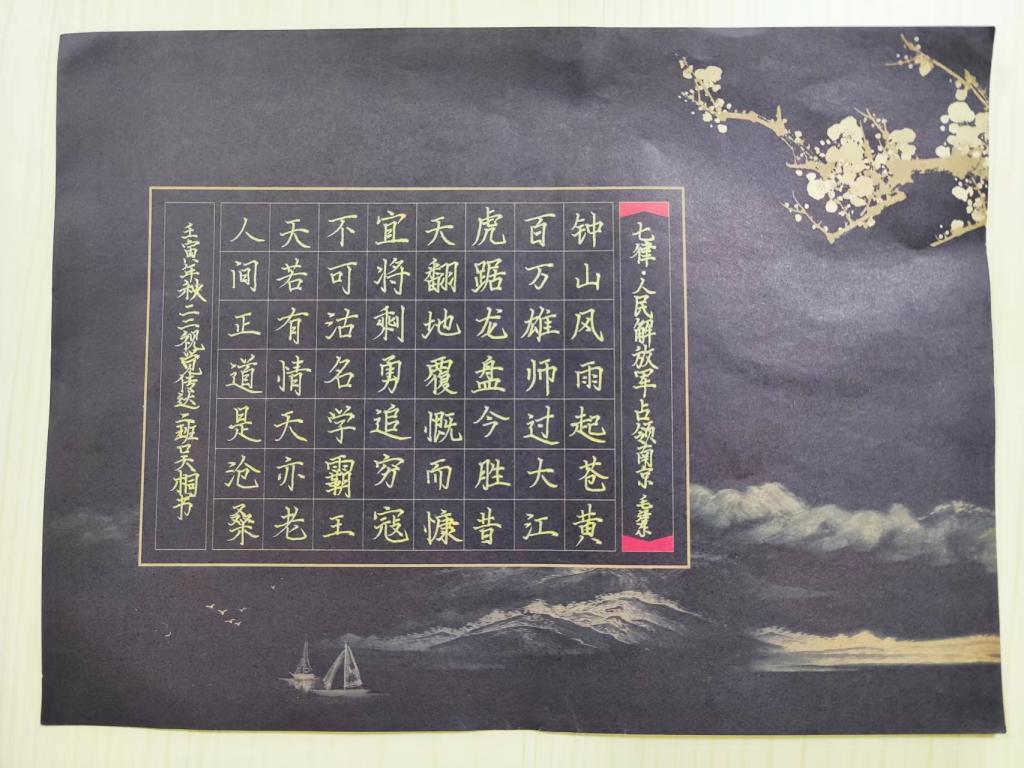 七律·人民解放军占领南京 毛泽东
钟山风雨起苍黄
百万雄师过大江
虎踞龙盘今胜昔
天翻地覆慨而慷
宜将剩勇追穷寇
不可沽名学霸王
天若有情天亦老
人间正道是沧桑
壬寅年秋二二视觉传达二班吴桐书